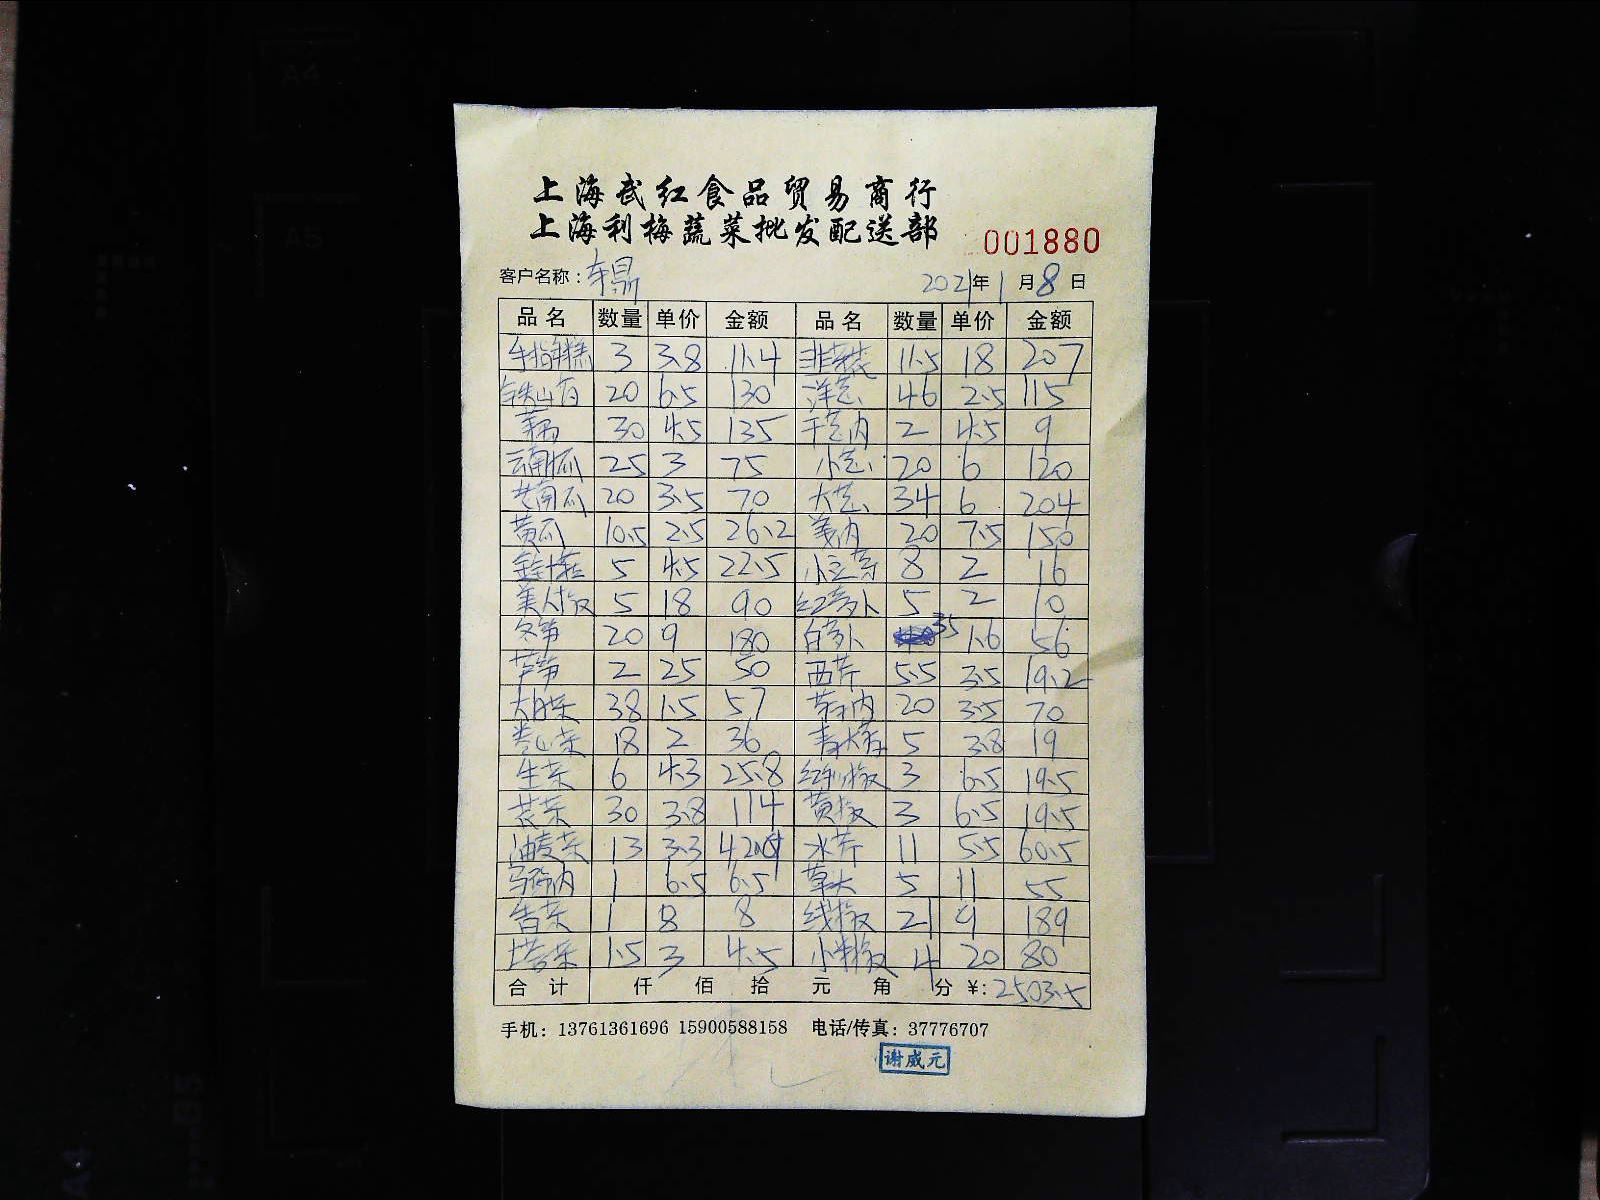 上海武红食品贸易商行
上海利梅蔬菜批发配送部
001880
客户名称：东鼎 2021年1月8日
品名 数量 单价 金额 品名 数量 单价 金额
手指年糕 3 3.8 11.4 韭菜花 11.5 18 207
铁山药 20 6.5 130 洋葱 46 2.5 115
莴笋 30 4.5 135 干葱肉 2 4.5 9
云南瓜 25 3 75 小葱 20 6 120
老南瓜 20 3.5 70 大葱 34 6 204
黄瓜 10.5 2.5 26.2 姜肉 20 7.5 150
金针菇 5 4.5 22.5 小豆芽 8 2 16
美人椒 5 18 90 红萝卜 5 2 10
冬笋 20 9 180 白萝卜 35 1.6 56
芦笋 2 25 50 西芹 5.5 3.5 19.2
大白菜 38 1.5 57 20 3.5 70
卷心菜 18 2 36 青大蒜 5 3.8 19
生菜 6 4.3 25.8 红椒 3 6.5 19.5
30 3.8 114 黄椒 3 6.5 19.5
油麦菜 13 3.3 42.9 水芹 11 5.5 60.5
马蹄肉 1 6.5 6.5 草头 5 11 55
香菜 1 8 8 线椒 21 9 189
塔菜 1.5 3 4.5 小米椒 4 20 80
合计 仟 佰 拾 元 角 分 ¥：2503.5
手机：13761361696 15900588158 电话/传真：37776707
谢威元
A4
A5
B5
A4